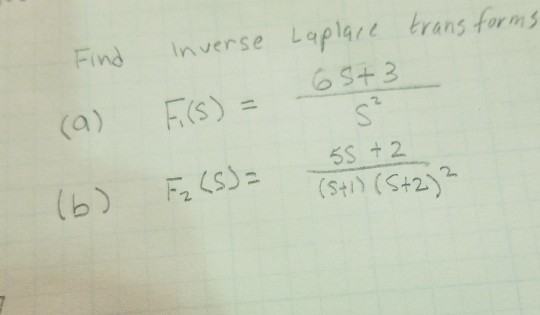 Find Inverse Laplace transforms
(a) F₁(s) = (6s+3)/s²
(b) F₂(s) = (5s+2)/((s+1)(s+2)²)